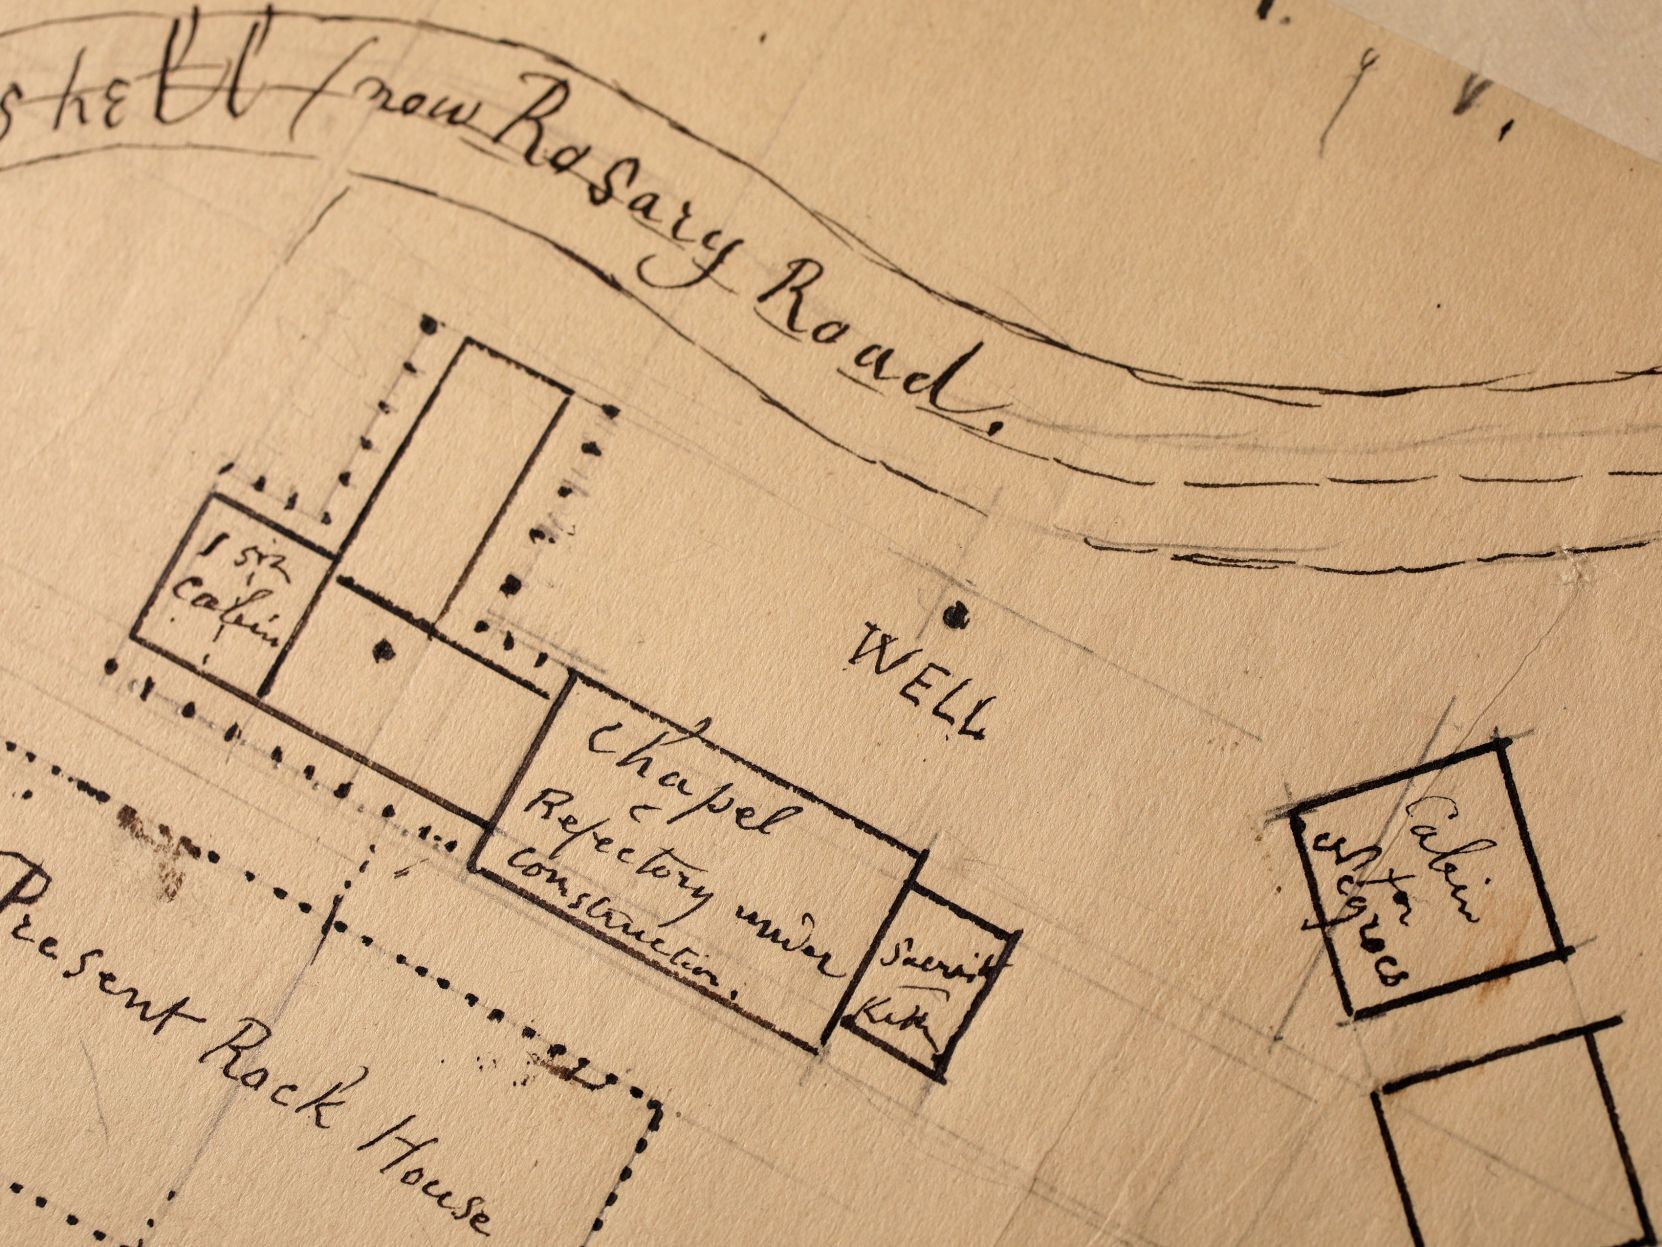 (now Rosary Road.
1 six
Cabin
WELL
Chapel
Refectory under
Construction.
Sacristy
Kitn
Cabin
for
Negroes
Present Rock House